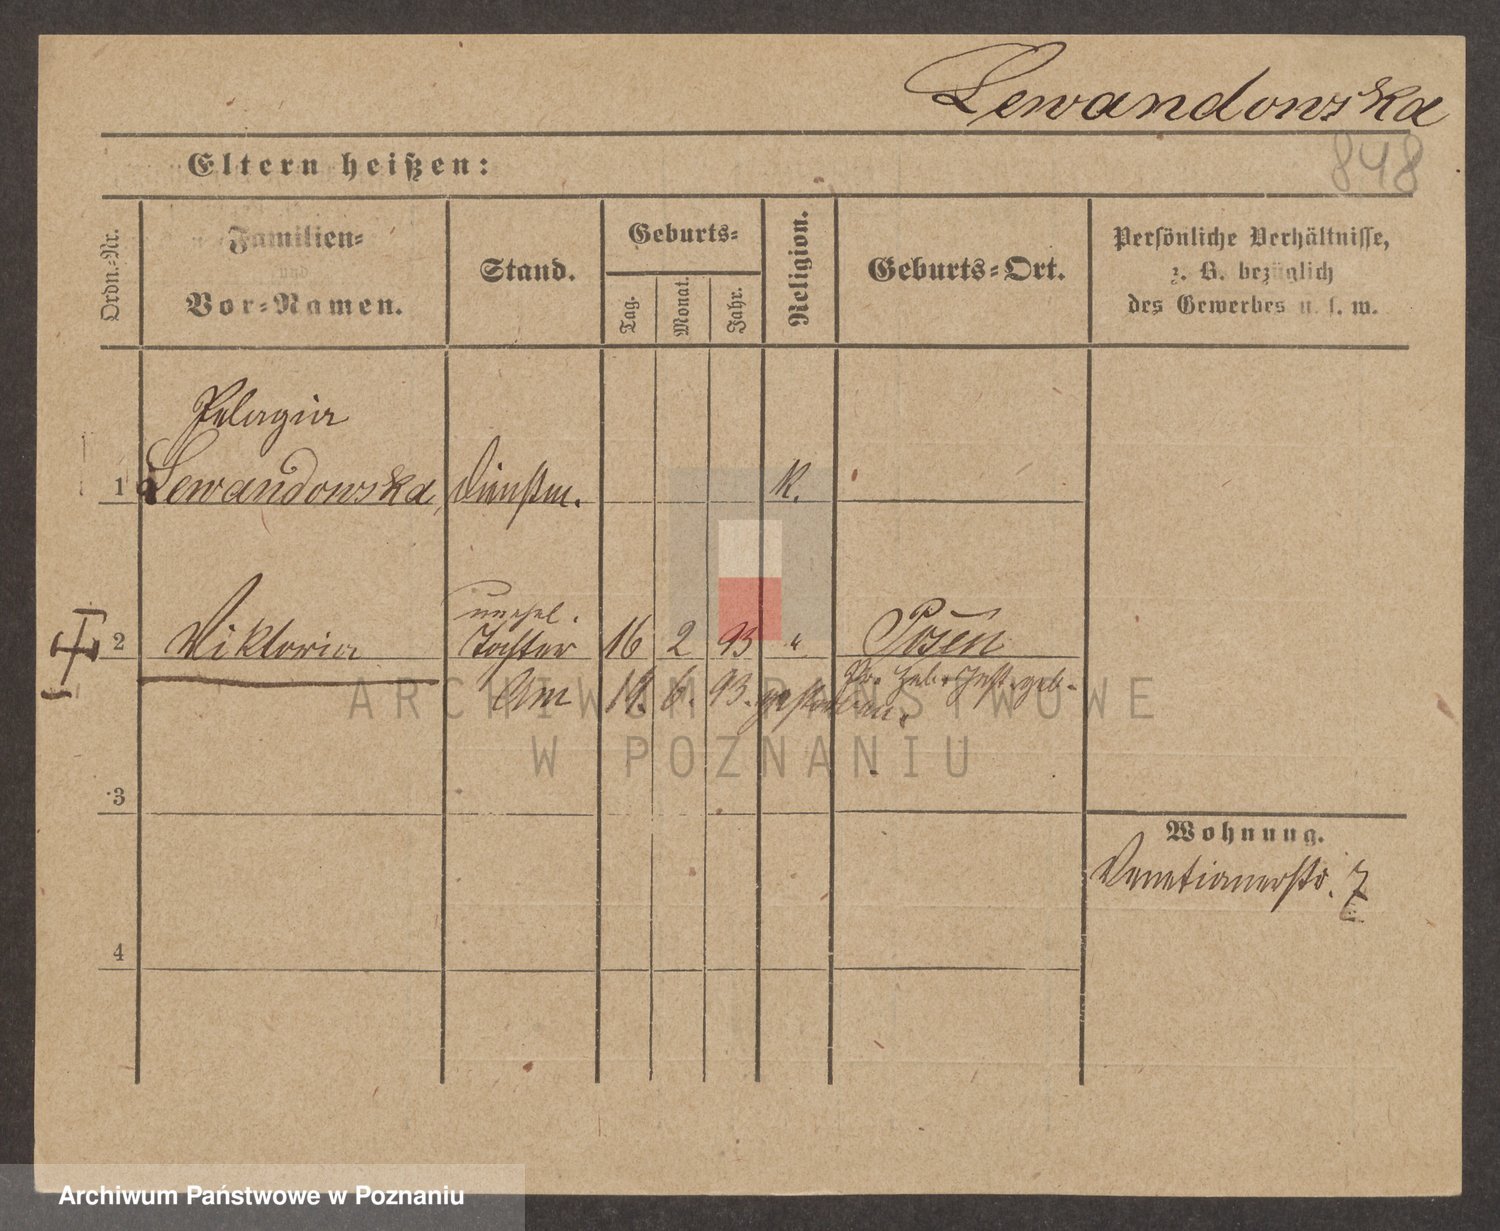 Lewandowska
848
Eltern heißen:
Ordn.-Nr.
Familien-
und
Vor-Namen.
Stand.
Geburts-
Tag.
Monat.
Jahr.
Religion.
Geburts-Ort.
Persönliche Verhältnisse,
z. B. bezüglich
des Gewerbes u. s. w.
Pelagia
1 Lewandowska, Dienstm. K.
unehel.
2 Viktoria Tochter 16 2 93 " Posen
Am 19. 6. 93. gestorben.
3
Wohnung.
Venetianerstr. 7
4
ARCHIWUM PAŃSTWOWE
W POZNANIU
Archiwum Państwowe w Poznaniu